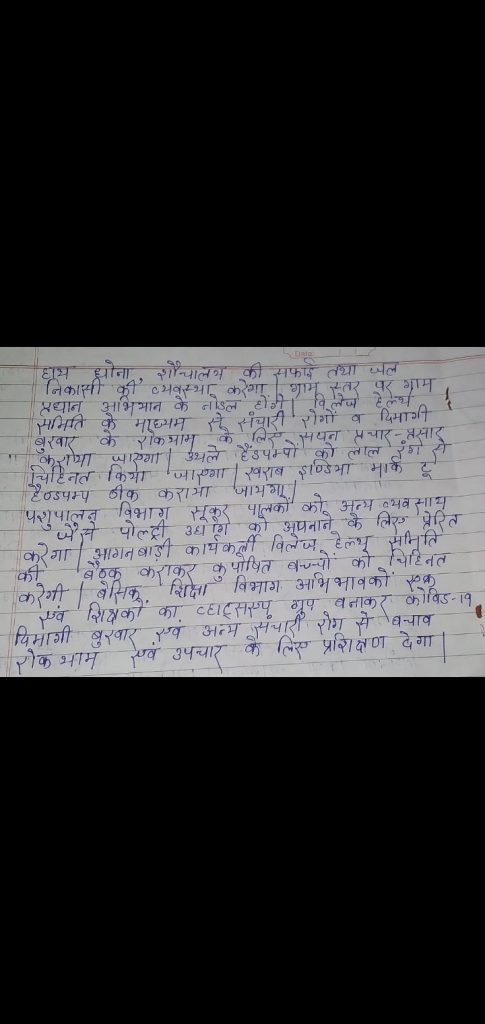 हाथ धोना, शौचालय की सफाई तथा जल
निकासी की व्यवस्था करेगा | ग्राम स्तर पर ग्राम
प्रधान अभियान के नोडल होंगे | विलेज हेल्थ
समिति के माध्यम से संचारी रोगों व दिमागी
बुखार के रोकथाम के लिए सघन प्रचार-प्रसार
कराया जाएगा | उथले हैंडपम्पों को लाल रंग से
चिन्हित किया जाएगा | खराब इण्डिया मार्क टू
हैण्डपम्प ठीक कराया जायेगा |
पशुपालन विभाग सूकर पालकों को अन्य व्यवसाय
जैसे पोल्ट्री उद्योग को अपनाने के लिए प्रेरित
करेगा | आगनबाड़ी कार्यकर्ती विलेज हेल्थ समिति
की बैठक कराकर कुपोषित बच्चों को चिन्हित
करेगी | बेसिक शिक्षा विभाग अभिभावकों
एवं शिक्षकों का व्हाट्सएप ग्रुप बनाकर कोविड-१९
दिमागी बुखार एवं अन्य संचारी रोग से बचाव
रोकथाम एवं उपचार के लिए प्रशिक्षण देगा |